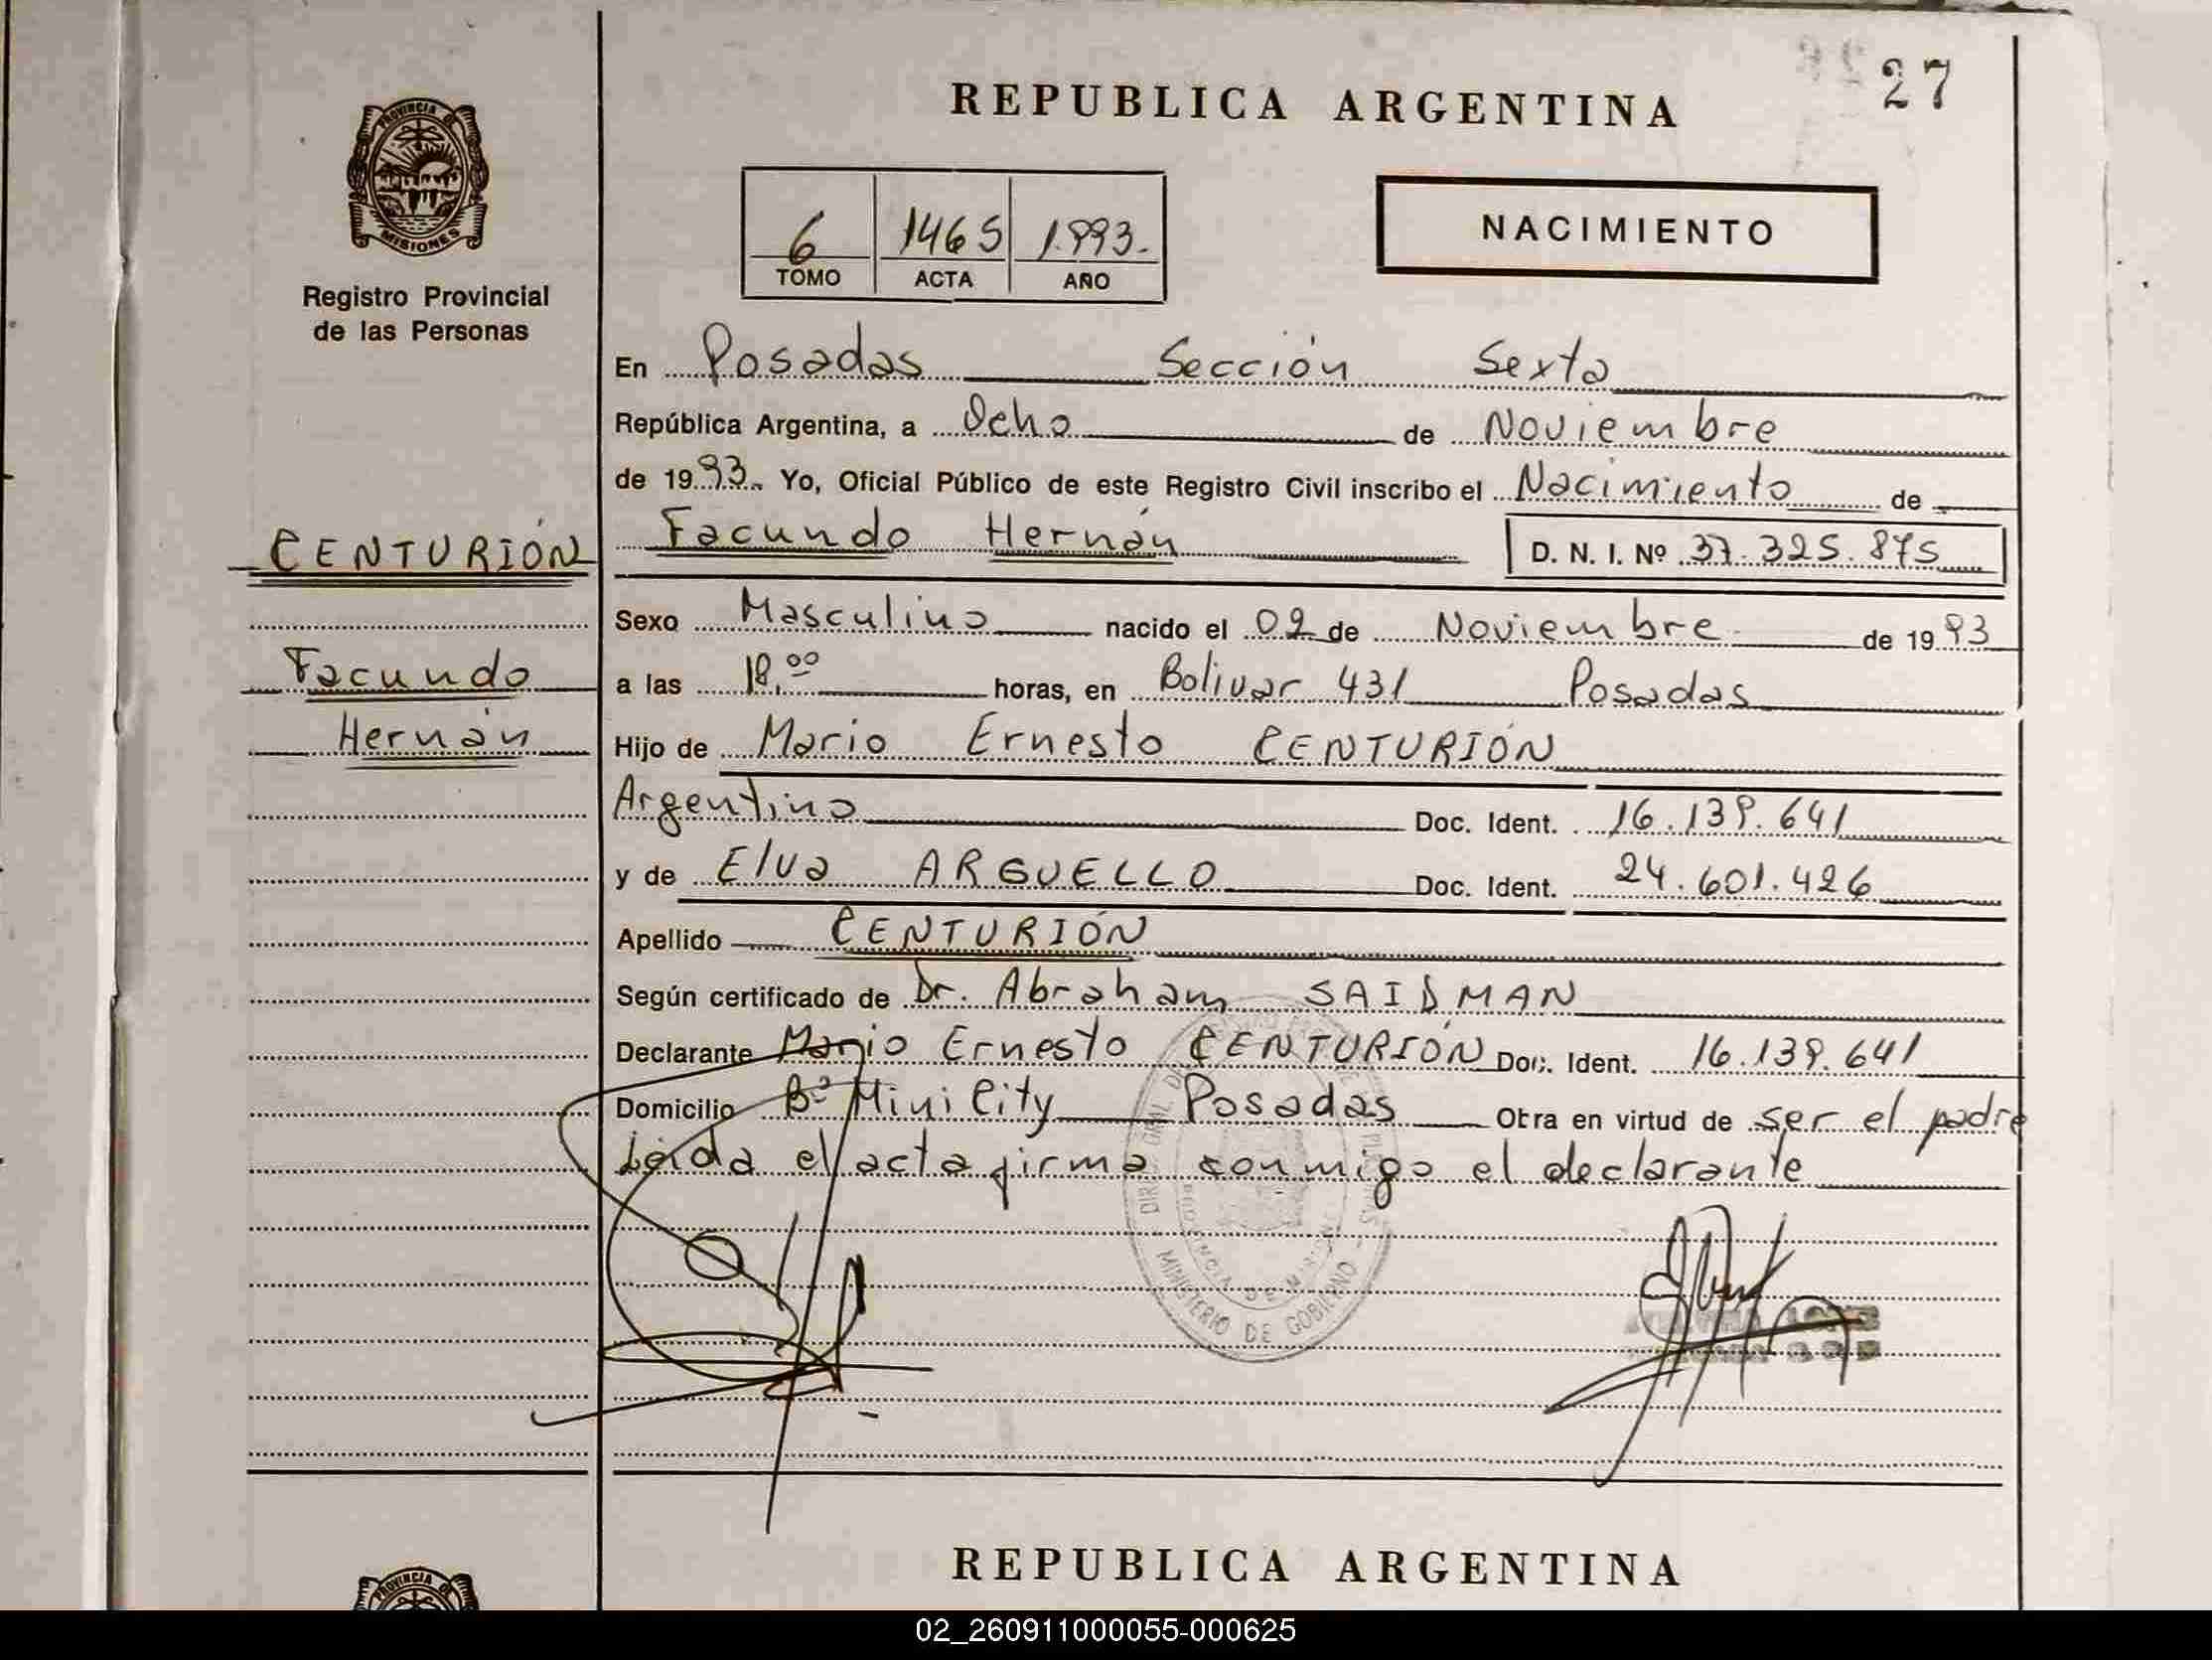 27
REPUBLICA ARGENTINA
PROVINCIA DE
MISIONES
Registro Provincial
de las Personas
6 1465 1.993.-
TOMO ACTA AÑO
NACIMIENTO
En Posadas Sección Sexta
República Argentina, a Ocho de Noviembre
de 1993. Yo, Oficial Público de este Registro Civil inscribo el Nacimiento de
CENTURIÓN
Facundo Hernán D. N. I. Nº 37.325.875
Sexo Masculino nacido el 02 de Noviembre de 1993
Facundo
a las 18,00 horas, en Bolivar 431 Posadas
Hernán
Hijo de Mario Ernesto CENTURIÓN
Argentino Doc. Ident. 16.139.641
y de Elva ARGUELLO Doc. Ident. 24.601.426
Apellido CENTURIÓN
Según certificado de Dr. Abraham SAIDMAN
Declarante Mario Ernesto CENTURIÓN Doc. Ident. 16.139.641
Domicilio Bº Mini City Posadas Obra en virtud de ser el padre
Leida el acta firma conmigo el declarante
MINISTERIO DE GOBIERNO
REPUBLICA ARGENTINA
PROVINCIA DE
02_260911000055-000625